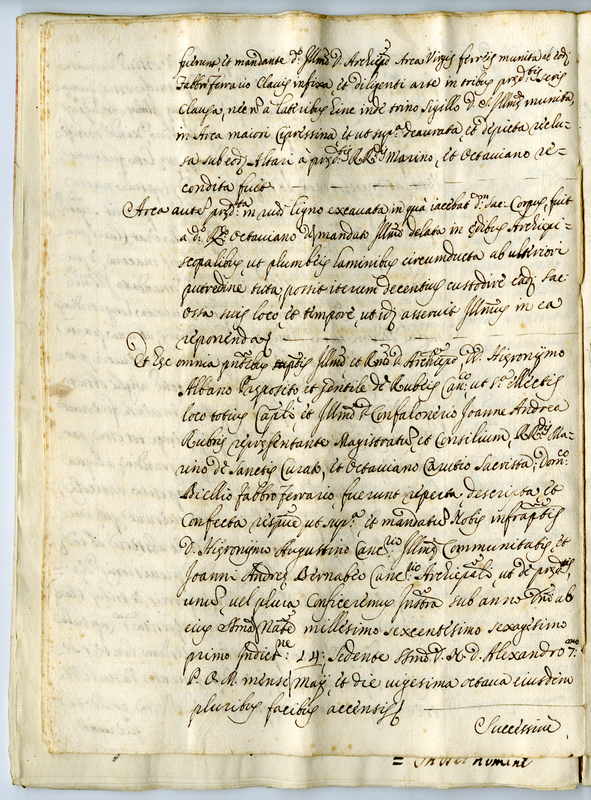 fuerunt et mandante d.º Illmõ D. Archiepõ Arca Virgis ferreis munita ab eodȝ
Fabbro Ferrario Clavis infixa, et diligenti arte in tribus predᵗⁱˢ seris
Clausa, nec nõ a lateribus sine inde trino Sigillo D. S. Illmẽ munita
in Arca maiori Cipressina et ut supᵃ deaurata et depicta reclu-
sa sub eodȝ Altari à predᵗⁱˢ RR.ᵈⁱˢ Marino, et Octaviano re-
condita fuit
Arca autẽ predᵗᵃ in rudi ligno excavata in quâ iacebat dᵐ sac: Corpus, fuit
a d.º Octaviano de mandato Illmẽ delata in Edibus Archiepi-
scopalibus ut plumbeis laminibus circumducta ab ulteriori
putredine tuta, possit iterum decentius custodire eadȝ sac
ossa suis loco, et tempore, ut idȝ asseruit Illmus in ea
reponenda
Et Ese omnia pntibus Illmõ et Rmõ D. Archiepõ DD. Hieronymo
Albano Preposito, et Gentile de Rubeis Canᶜᵒ ut sᵃ electis
loco totius Capli, et Illmõ D. Confalonerio Joanne Andrea
Rubeis representante Magistratũ, et Consilium, RR.ᵈⁱˢ Ma-
rino de Sanctis Curato, et Octaviano Sacrista, Domᶜᵒ
Biellio Fabbro Ferrario, fuerunt reperta descripta, et
Confecta respuẽ ut supᵃ, et mandatũ Nobis infrãptis
D. Hieronymo Augustino Cancʳⁱᵒ Illmẽ Communitatis, et
Joanni Andreȩ Bernabeo Cancʳⁱᵒ Archiepali ut de predᵗⁱˢ,
unũ, vel plura Conficeremus Instra sub anno Dnĩ ab
eius Natᵗᵉ millesimo sexcentesimo sexagesimo
primo Indictⁿᵉ: 14: Sedente Ssmõ D. N. D. Alexandro 7:ᵐᵒ
P. O. M. mense Maij et die vigesima octava eiusdem
pluribus facibus accensis
Successive
= In Dei Nomine